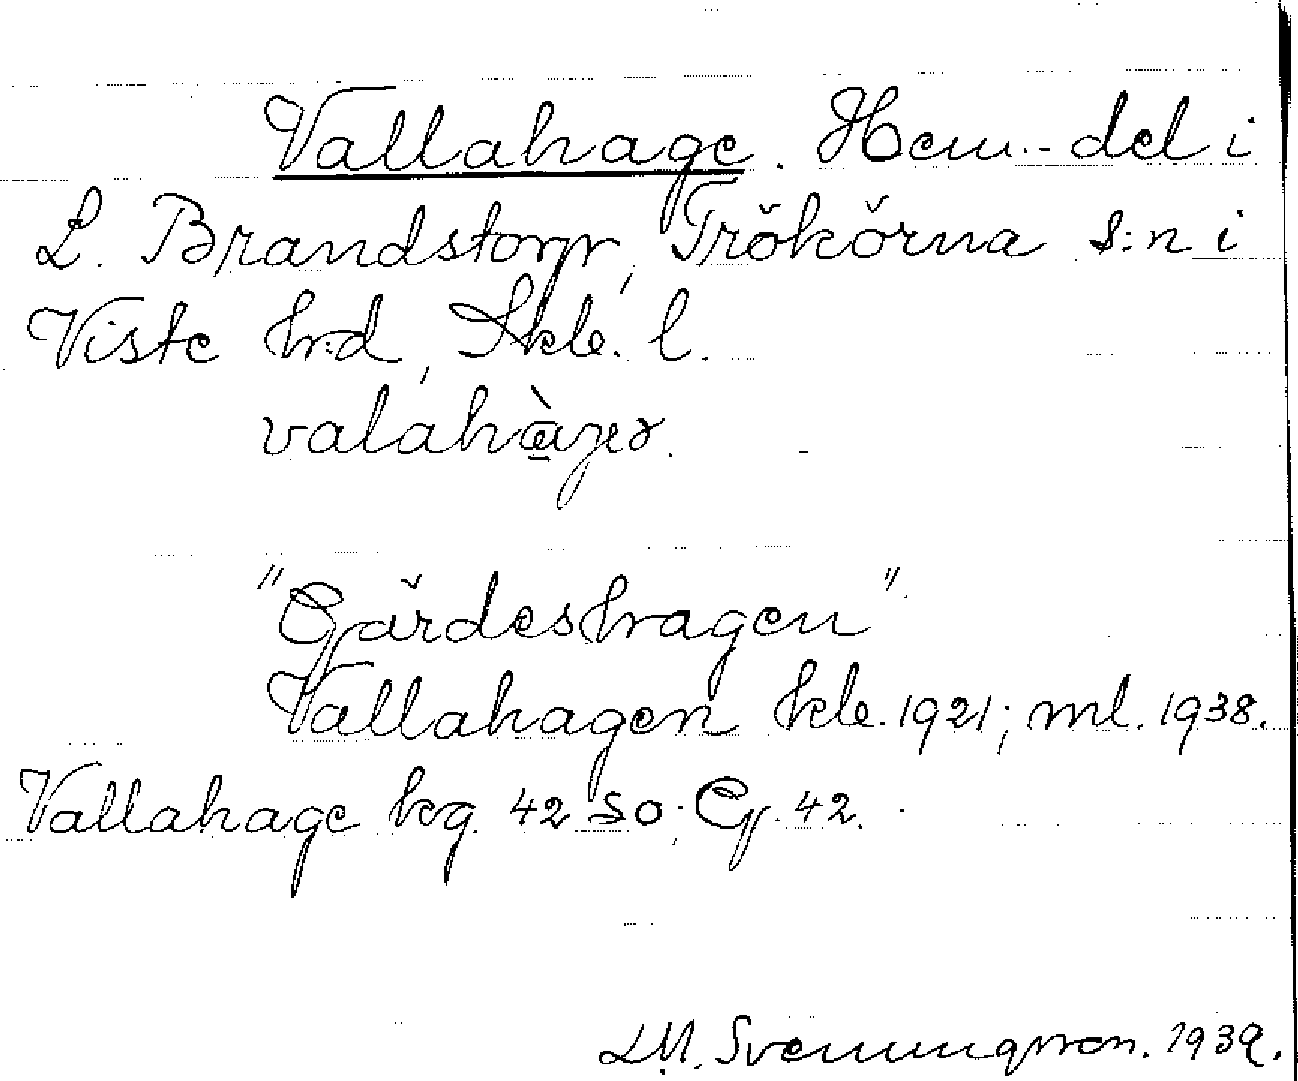 Vallahage. Hem.-del i
L. Brandstorp, Trökörna s:n i
Viste hrd, Skb. l.
"Gärdeshagen".
Vallahagen kb. 1921; ml. 1938.
Vallahage kg. 42 SO; Gg. 42.
Svenungsson. 1939.